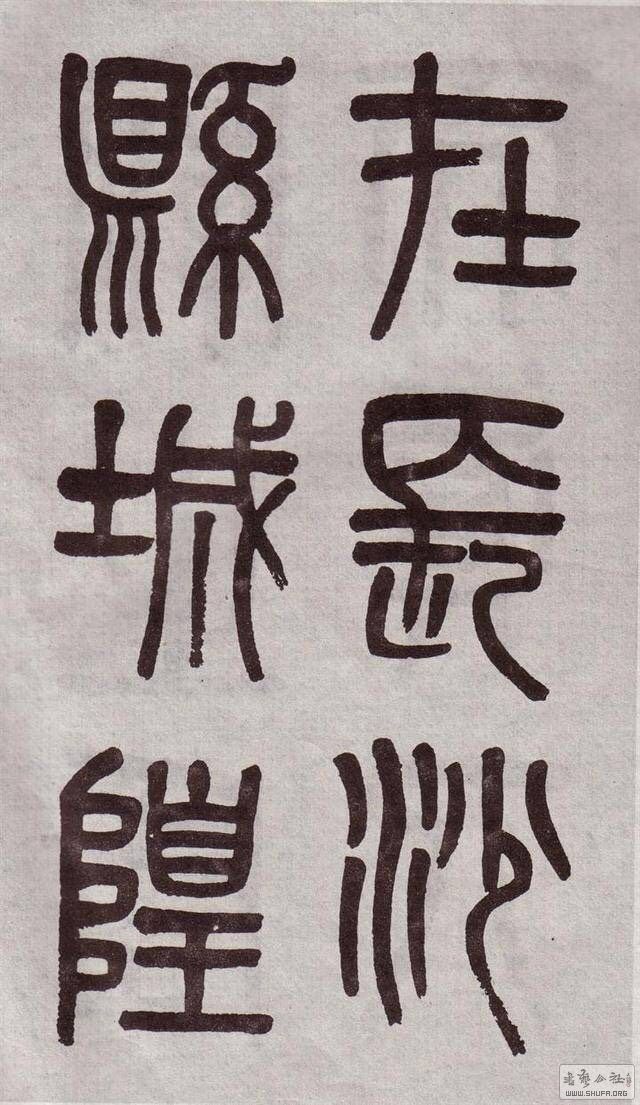 在長沙
縣城隍
書艺公社
WWW.SHUFA.ORG